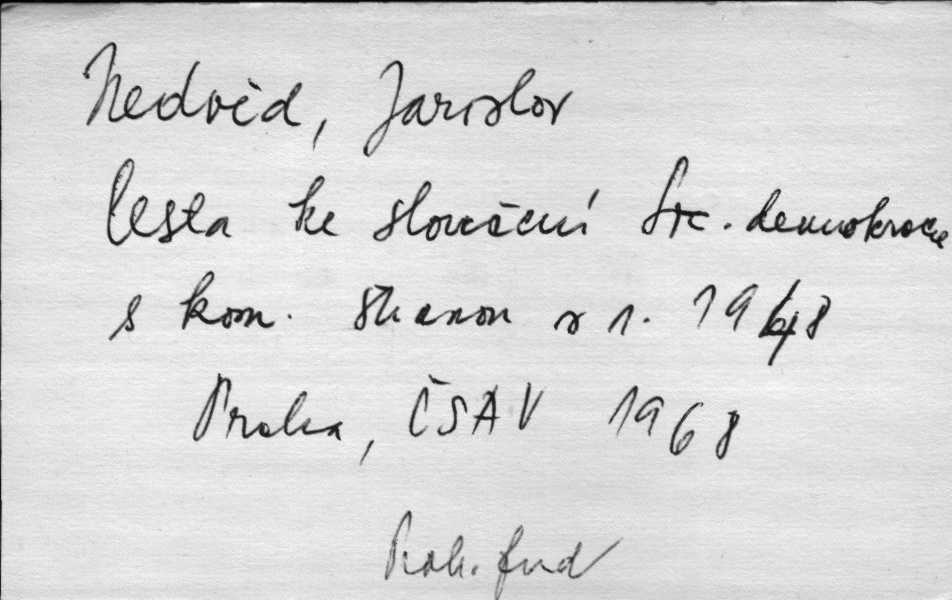 Nedvěd, Jaroslav
Cesta ke sloučení Soc. demokracie
s kom. stranou v r. 1948
Praha, ČSAV 1968